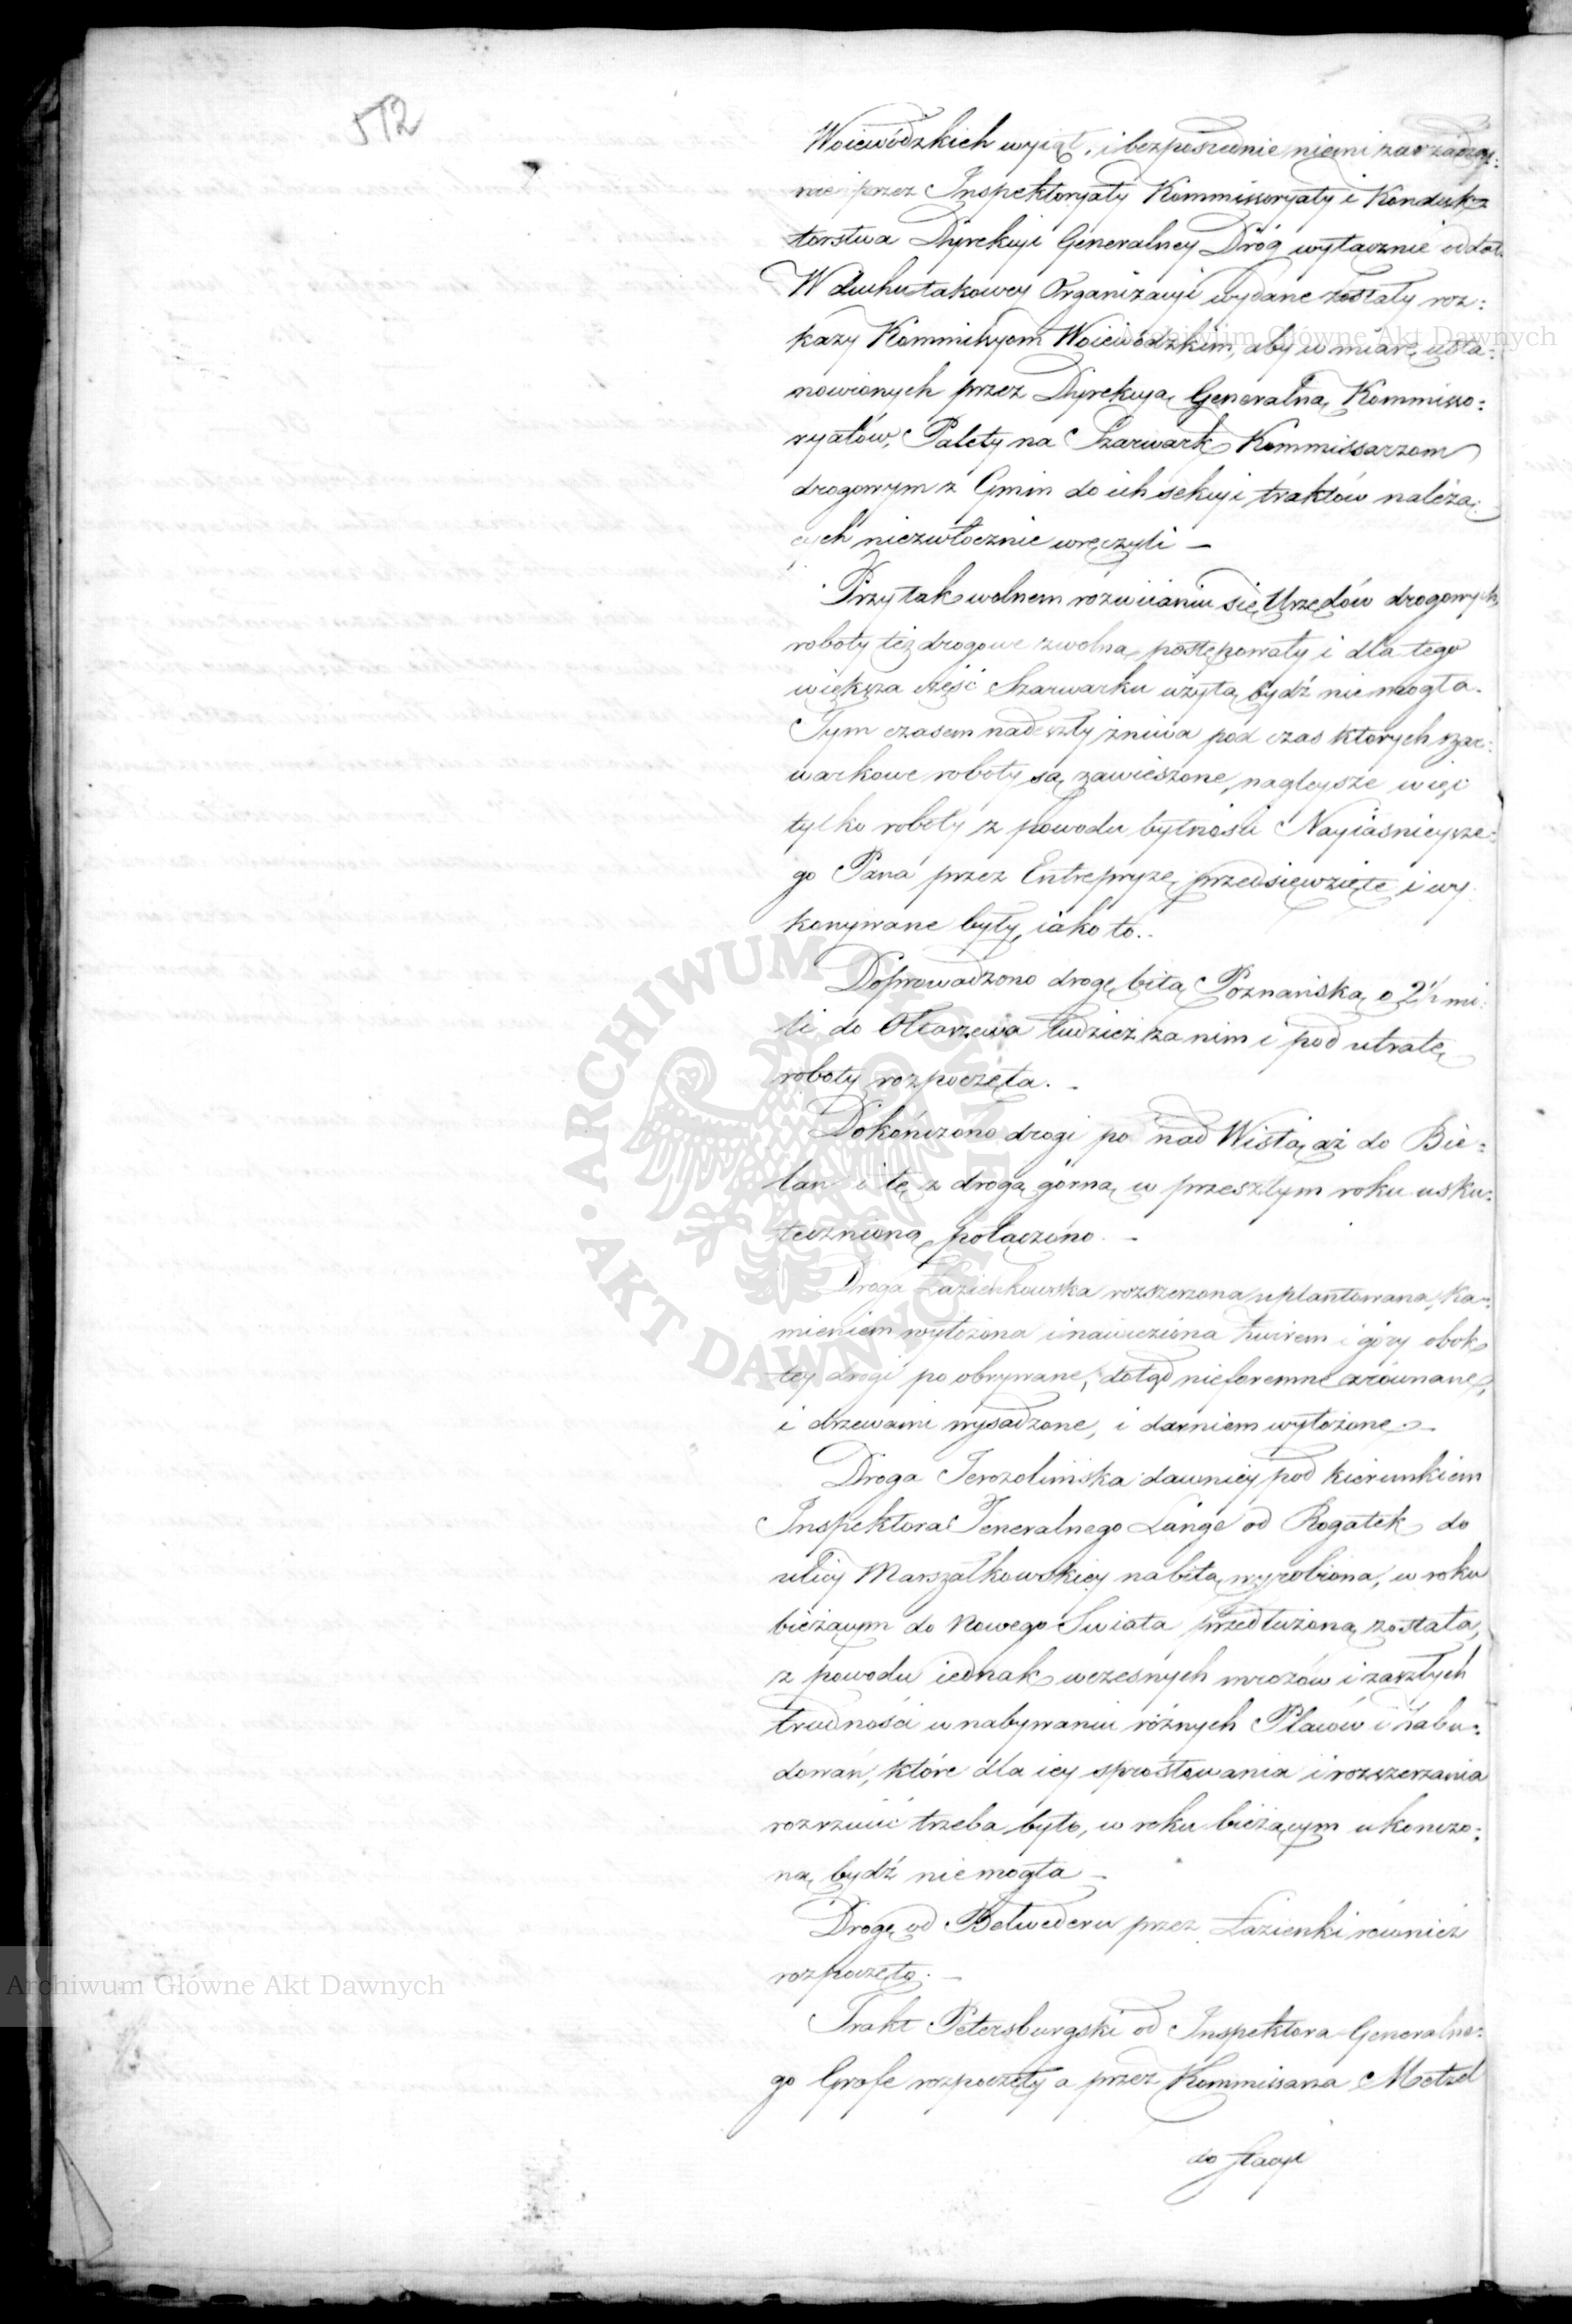 512
Woiewódzkich wyiął, i bezpośrednie niemi zarządza¬
nie przez Inspektoryaty Kommissoryaty i Konduk¬
torstwa Dyrekcyi Generalney Dróg wyłącznie oddał.
W duchu takowey Organizacyi wydane zostały roz¬
kazy Kommissyom Woiewódzkim, aby w miarę usta¬
nowionych przez Dyrekcyą Generalną Kommisso¬
ryatów, Palety na Szarwark Kommissarzom
drogowym z Gmin do ich sekcyi traktów należą¬
cych niezwłocznie wręczyli —
Przy tak wolnem rozwiianiu się Urzędów drogowych
roboty też drogowe zwolna postępowały i dla tego
większa część Szarwarku użytą bydź nie mogła.
Tym czasem nadeszły żniwa pod czas których szar¬
warkowe roboty są zawieszone, nagleysze więc
tylko roboty z powodu bytności Nayiaśnieysze¬
go Pana przez Entrepryzę przedsięwzięte i wy¬
konywane były, iako to.
Doprowadzono drogę bitą Poznańską o 2½ mi¬
li do Ołtarzewa tudzież za nim i pod utratę
roboty rozpoczęta. —
Dokończono drogi po nad Wisłą aż do Bie¬
lan i tę z drogą górną w przeszłym roku usku¬
tecznioną połączono. —
Droga Łazienkowska rozszerzona uplantowana, ka¬
mieniem wyłożona i nawieziona żwirem i góry obok
tey drogi po obrywane, dotąd nieforemne zrównane,
i drzewami wysadzone, i darniem wyłożone. —
Droga Jerozolimska dawniey pod kierunkiem
Inspektora Jeneralnego Lange od Rogatek do
ulicy Marszałkowskiey na bitą wyrobiona, w roku
bieżącym do Nowego Świata przedłużoną została,
z powodu iednak wczesnych mrozów i zaszłych
trudności w nabywaniu różnych Placów i Zabu¬
dowań, które dla iey sprostowania i rozszerzania
rozrzucić trzeba było, w roku bieżącym ukończo¬
ną bydź nie mogła —
Drogę od Belwederu przez Łazienki również
rozpoczęto. —
Trakt Petersburgski od Inspektora Generalne¬
go Grofe rozpoczęty a przez Kommissarza Metzel
do Stacyi
Archiwum Główne Akt Dawnych
Archiwum Główne Akt Dawnych
ARCHIWUM GŁÓWNE
AKT DAWNYCH